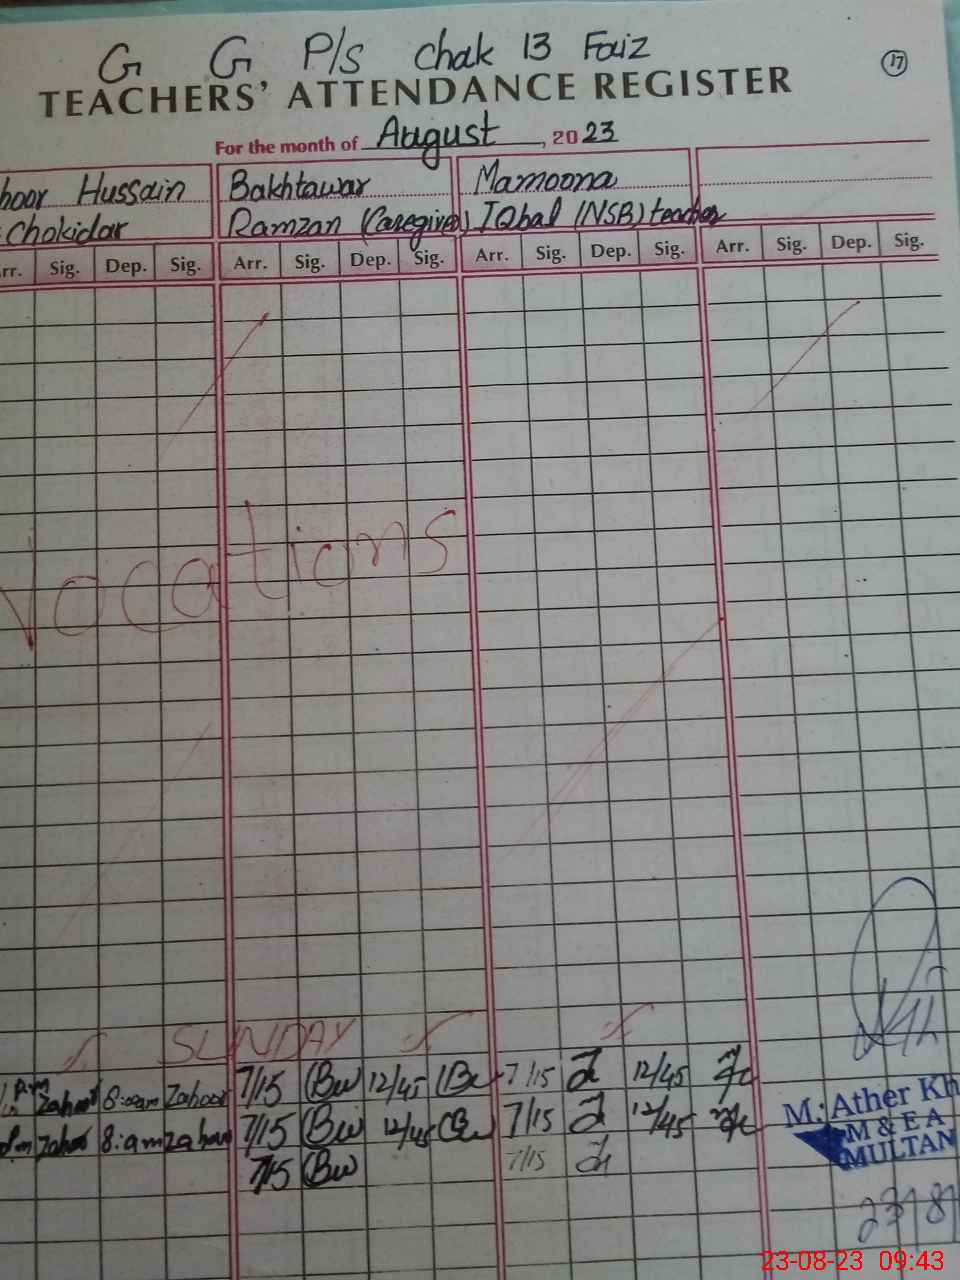 G G P/s Chak 13 Faiz
17
TEACHERS' ATTENDANCE REGISTER
For the month of August, 2023
hoor Hussain Bakhtawar Mamoona
Chokidar Ramzan (Caregiver) IQbal (NSB) teacher
rr. Sig. Dep. Sig. Arr. Sig. Dep. Sig. Arr. Sig. Dep. Sig. Arr. Sig. Dep. Sig.
Vocations
SUNDAY
Zahoor 8:00am Zahoor 7/15 Bw 12/45 Bw 7/15 12/45
pm Zahoor 8:am Zahoor 7/15 Bw 12/45 Bw 7/15 12/45
7/15 Bw 7/15
M. Ather Kh
M & E A
MULTAN
23/8/
23-08-23 09:43